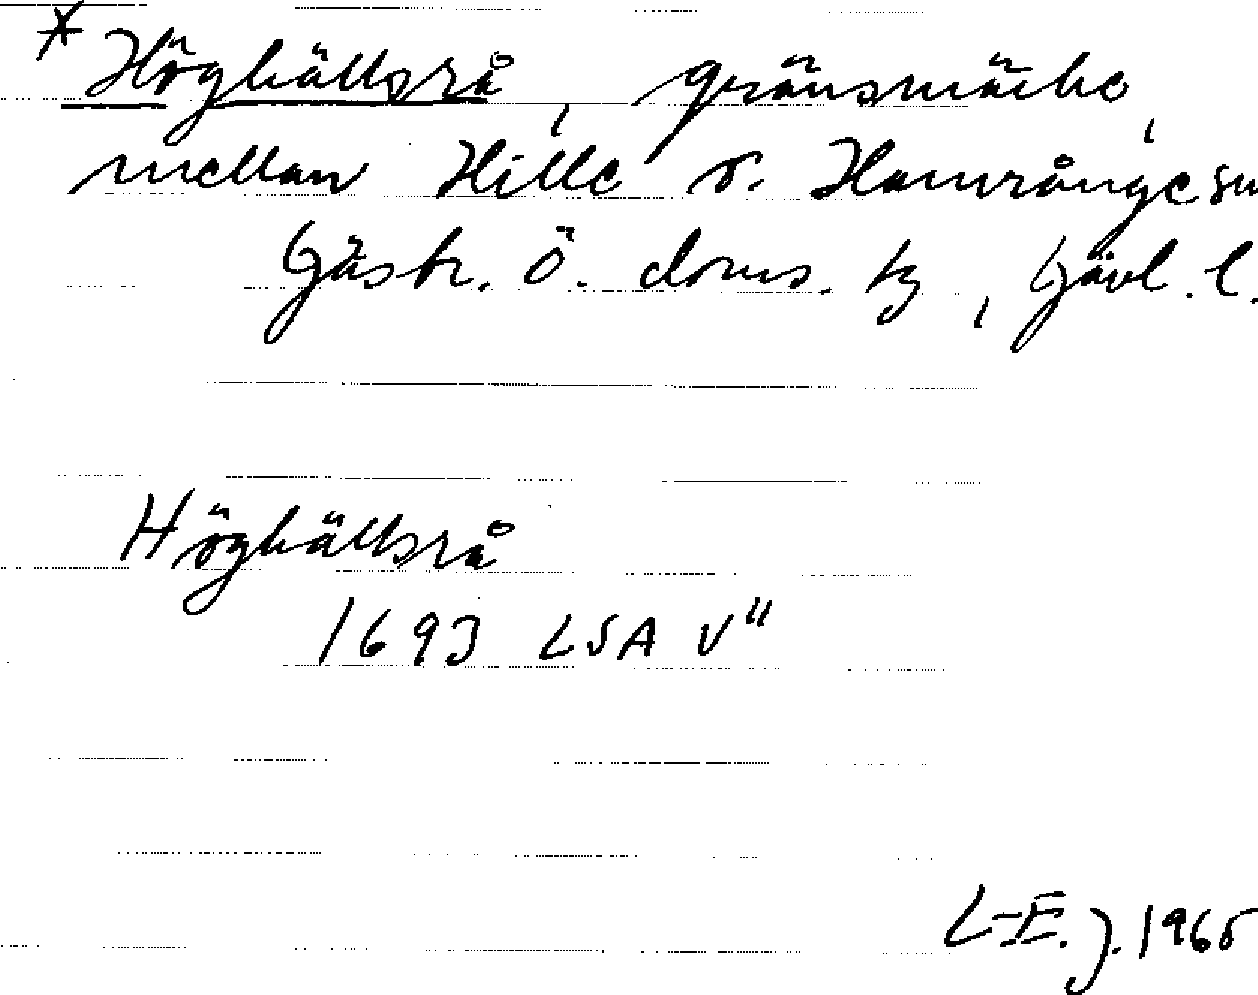 * Höghällsrå, gränsmärke,
mellan Hille o. Hamrånge sn
Gästr. Ö. doms. tg, Gävl. l.
Höghällsrå
1693 LSA V"
L-E. J. 1965